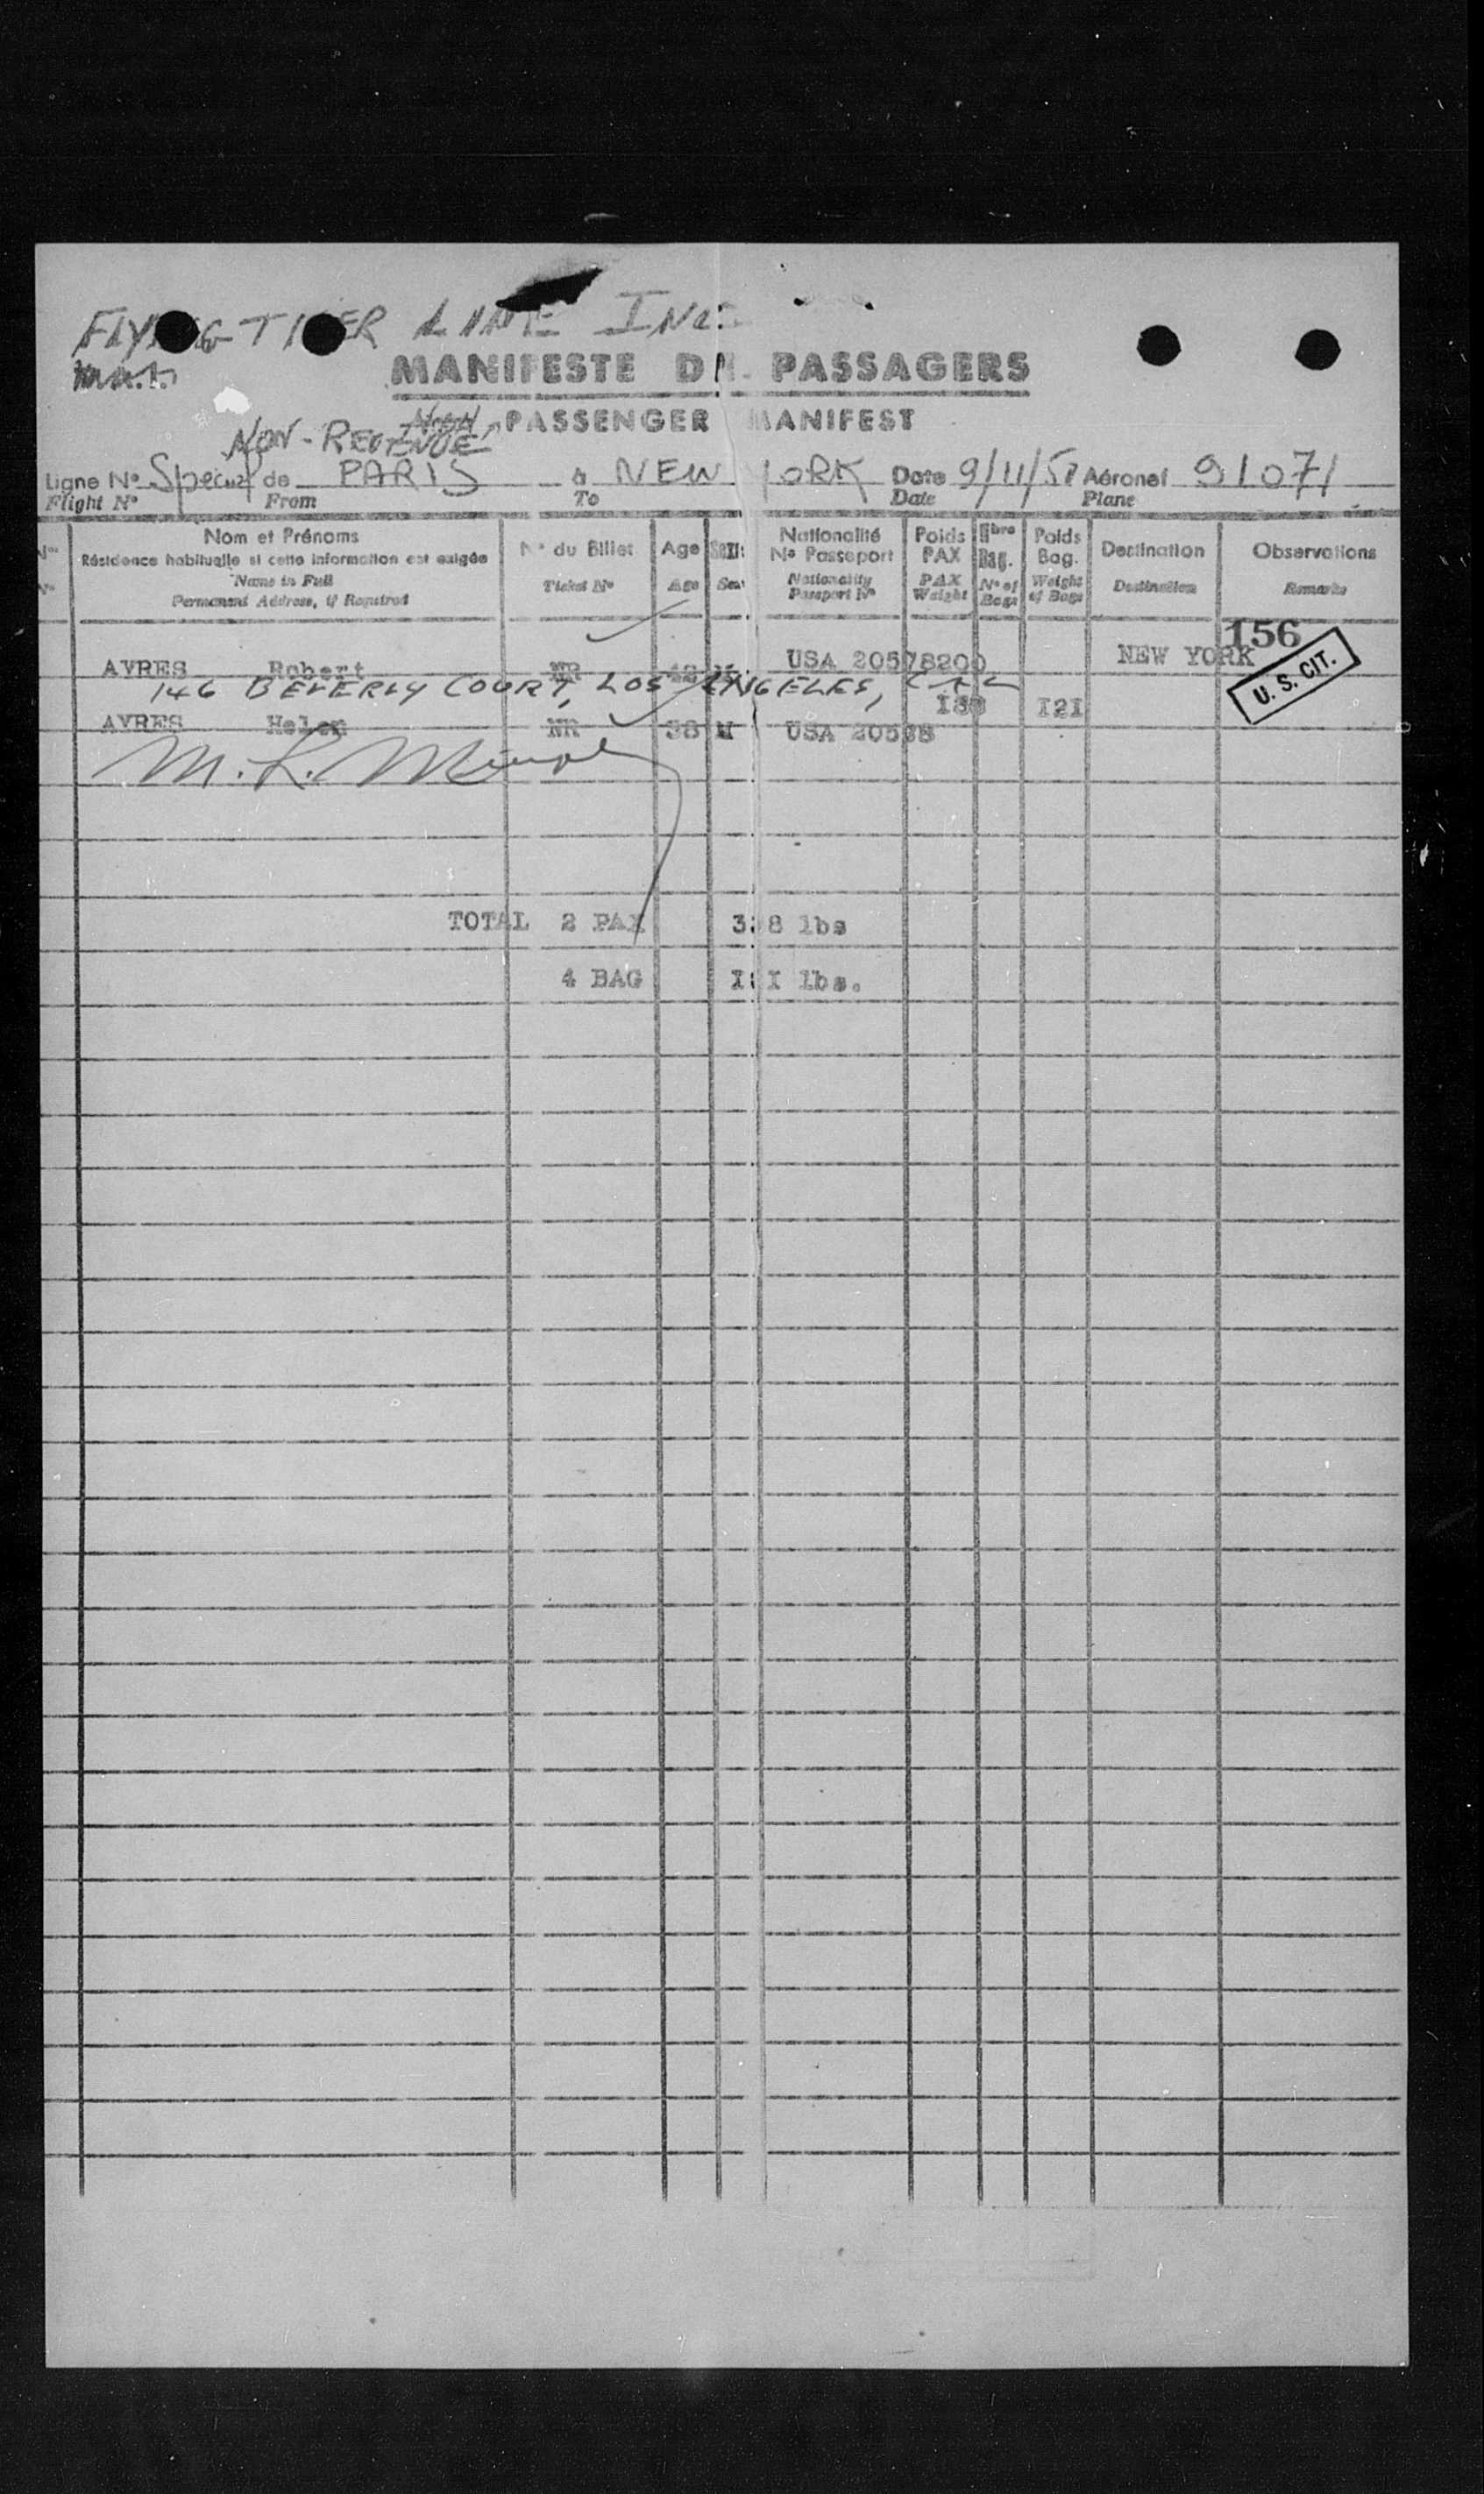 FLYING TIGER LINE INC.
MANIFESTE DE PASSAGERS
NON-REVENUE PASSENGER MANIFEST
Ligne No Special de PARIS à NEW YORK Date 9/11/51 Aéronef 91071
Flight No From To Date Plane
Nom et Prénoms No du Billet Age Sexe Nationalité Poids Nbre Poids Destination Observations
Résidence habituelle si cette information est exigée No Passeport PAX Bag. Bag.
Name in Full Ticket No Age Sex Nationality PAX No of Weight Destination Remarks
Permanent Address, if Required Passport No Weight Bags of Bags
156
AYRES Robert NR USA 20578200 NEW YORK U. S. CIT.
146 BEVERLY COURT, LOS ANGELES, CAL
I21
AYRES Helen NR 38 USA
M. L.
TOTAL 2 PAX lbs
4 BAG lbs.